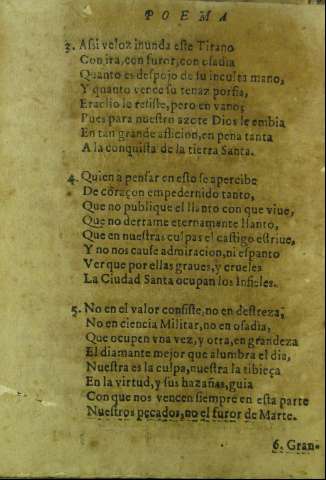 POEMA
3. Assi veloz inunda este Tirano
Con ira, con furor, con osadia
Quanto es despojo de su inculta mano,
Y quanto vence su tenaz porfia,
Eraclio le resiste, pero en vano;
Pues para nuestro azote Dios le embia
En tan grande aflicion, en pena tanta
A la conquista de la tierra Santa.
4. Quien a pensar en esto se apercibe
De coraçon empedernido tanto,
Que no publique el llanto con que viue,
Que no derrame eternamente llanto,
Que en nuestras culpas el castigo estriue,
Y no nos cause admiracion, ni espanto
Ver que por ellas graues, y crueles
La Ciudad Santa ocupan los Infieles.
5. No en el valor consiste, no en destreza,
No en ciencia Militar, no en osadia,
Que ocupen vna vez, y otra, en grandeza
El diamante mejor que alumbra el dia,
Nuestra es la culpa, nuestra la tibieça
En la virtud, y sus hazañas, guia
Con que nos vencen siempre en esta parte
Nuestros pecados, no el furor de Marte.
6. Gran-